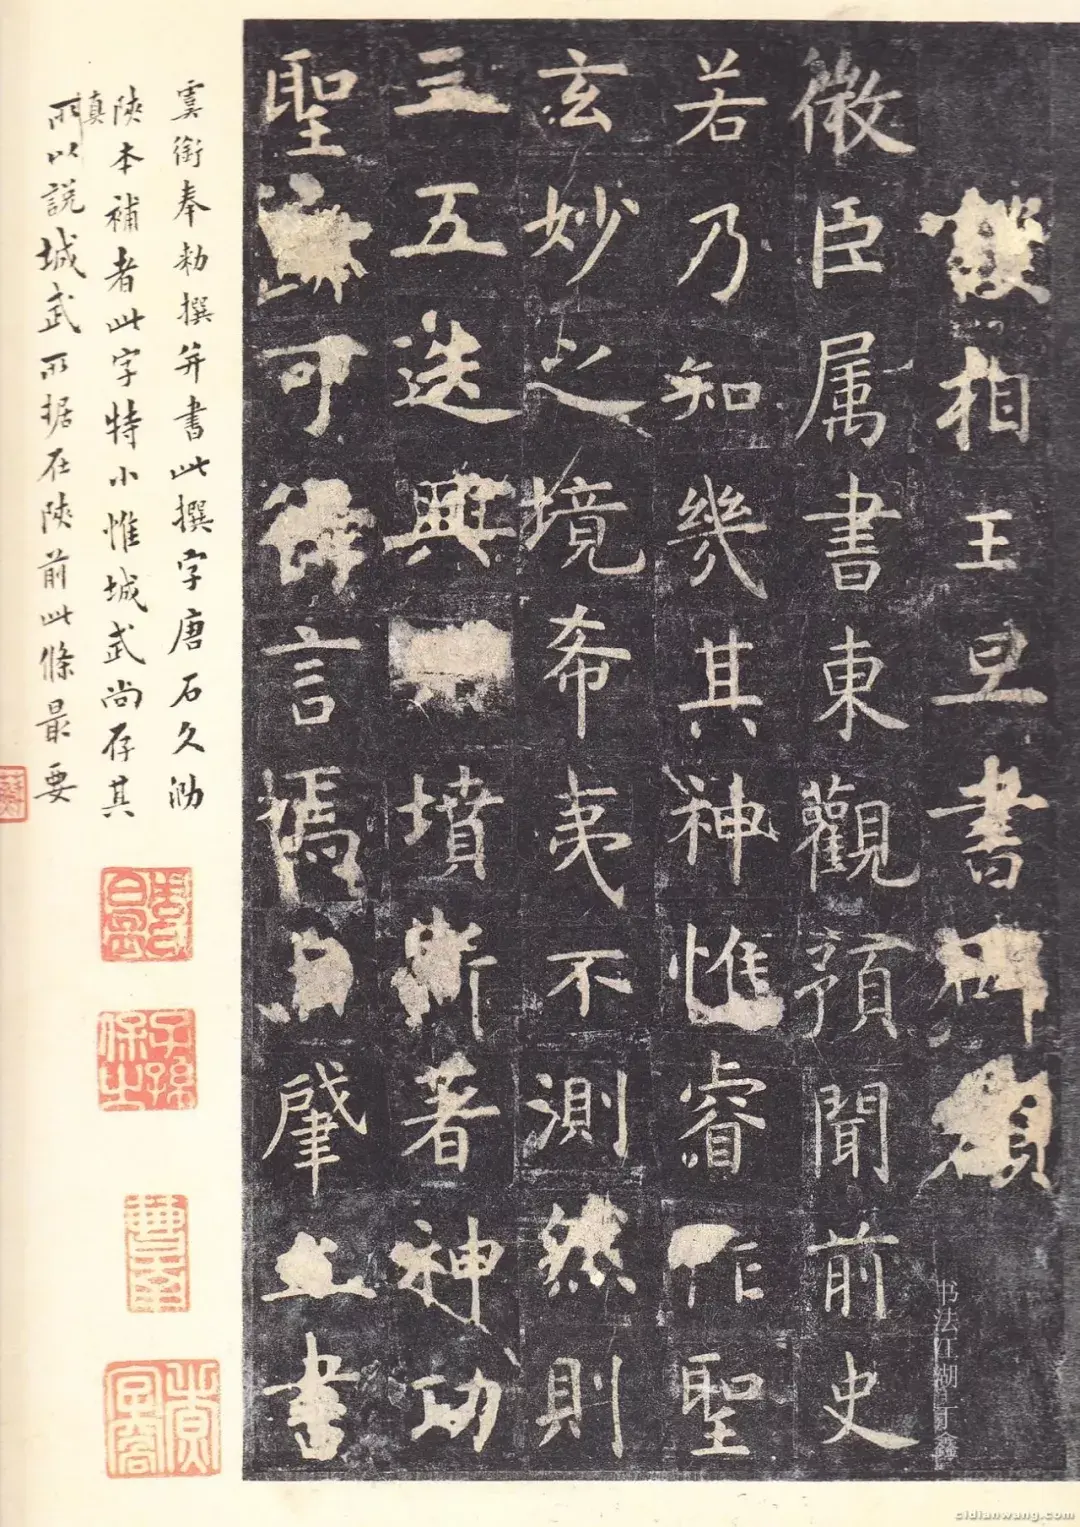 護相王旦書碑額
微臣属書東觀預聞前史
若乃知幾其神惟睿作聖
玄妙之境希夷不測然則
三五迭興墳斯著神功
聖迹可得言焉自肇立書
虞銜奉勑撰并書此撰字唐石久泐
陝本補者此字特小惟城武尚存其
真所以説城武所据在陝前此條最要
子孫保之
书法江湖 丁鑫
cidianwang.com